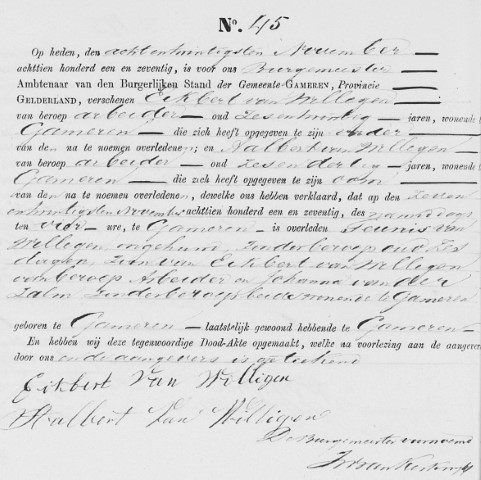 No. 45
Op heden, den achtentwintigsten November
achttien honderd een en zeventig, is voor ons Burgemeester
Ambtenaar van den Burgerlijken Stand der Gemeente GAMEREN, Provincie
GELDERLAND, verschenen Eikbert van Willigen
van beroep arbeider oud jaren, wonende te
Gameren die zich heeft opgegeven te zijn vader
van den na te noemen overledene; en Aalbert van Willigen
van beroep arbeider oud zesendertig jaren, wonende te
Gameren die zich heeft opgegeven te zijn oom
van den na te noemen overledene, dewelke ons hebben verklaard, dat op den zeven
entwintigsten November achttien honderd een en zeventig, des namiddags
ten vier ure, te Gameren is overleden Teunis van
Willigen ongehuwd zonder beroep oud zes
dagen, zoon van Eikbert van Willigen
van beroep Arbeider en Johanna van der
Zalm zonder beroep beide wonende te Gameren
geboren te Gameren laatstelijk gewoond hebbende te Gameren
En hebben wij deze tegenwoordige Dood-Akte opgemaakt, welke na voorlezing aan de aangevers
door ons en de aangevers is geteekend
Eikbert Van Willigen
Aalbert Van Willigen
De Burgemeester voornoemd